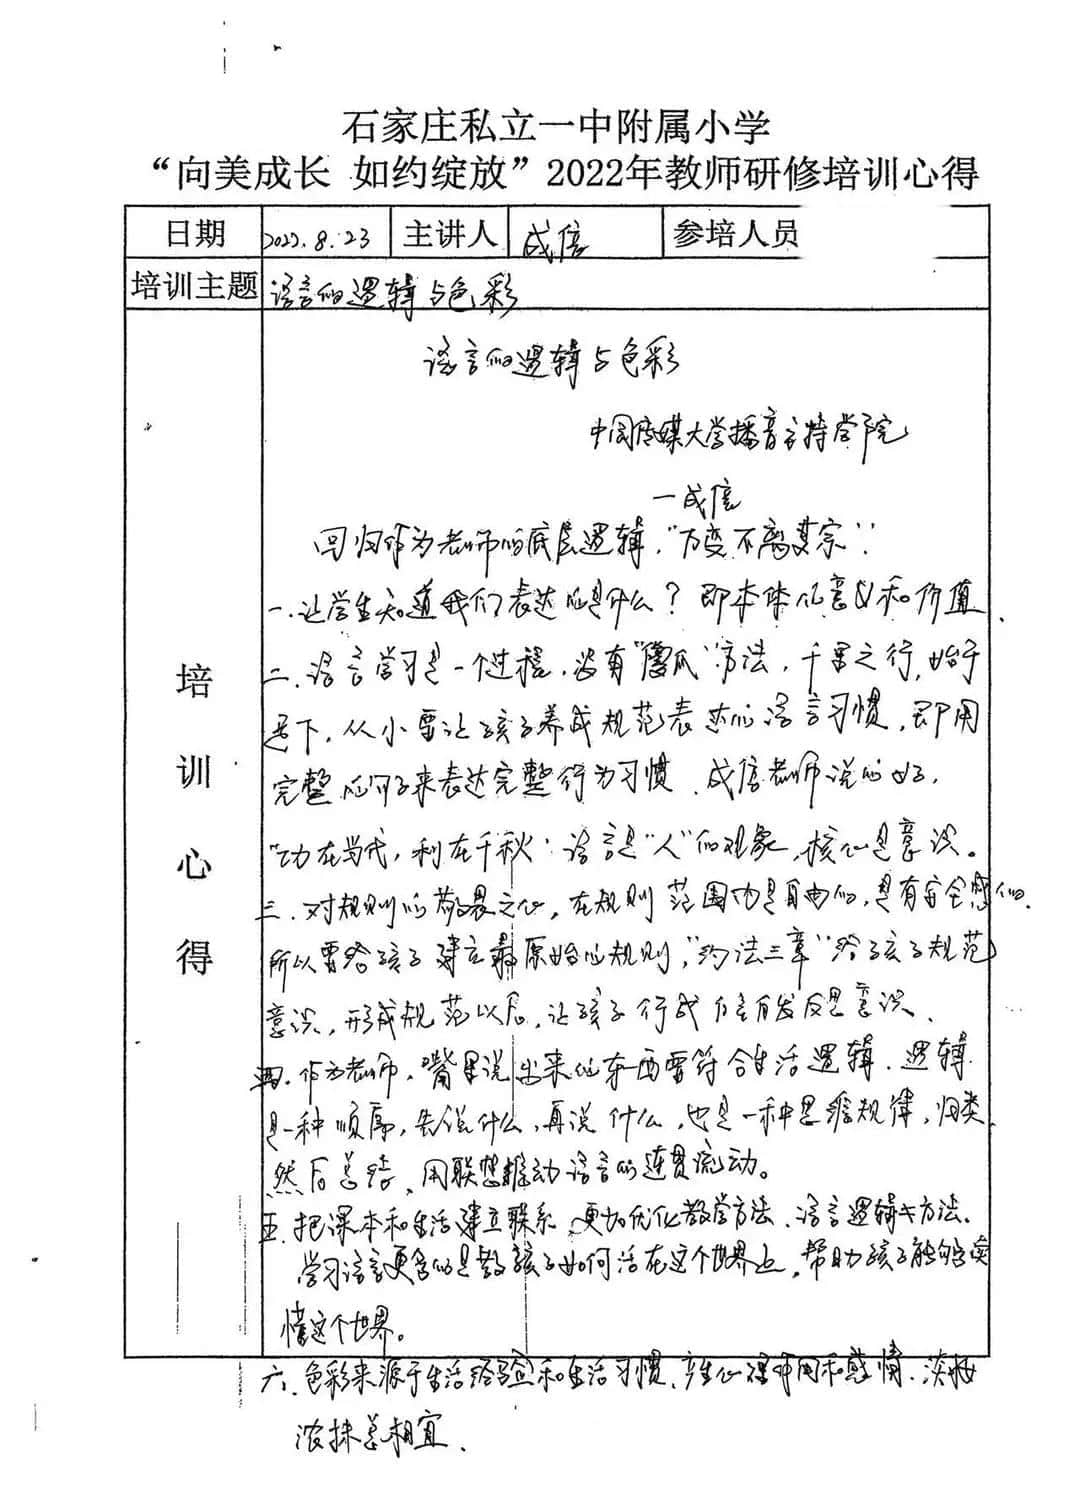 石家庄私立一中附属小学
“向美成长 如约绽放”2022年教师研修培训心得
日期 2022.8.23 主讲人 成倍 参培人员
培训主题 语言的逻辑与色彩
培训心得
语言的逻辑与色彩
中国传媒大学播音主持学院
—成倍
回归作为老师的底层逻辑，“万变不离其宗”：
一.让学生知道我们表达的是什么？即本体的意义和价值.
二.语言学习是一个过程，没有“傻瓜”方法，千里之行，始于
足下，从小要让孩子养成规范表达的语言习惯，即用
完整的句子来表达完整行为习惯.成倍老师说的好，
“功在当代，利在千秋：语言是“人”的现象，核心是意识。
三.对规则的敬畏之心，在规则范围内是自由的，是有安全感的.
所以要给孩子建立最原始的规则，“约法三章”给孩子规范
意识，形成规范以后，让孩子行成自发反思意识.
四.作为老师，嘴里说出来的东西要符合生活逻辑.逻辑
是一种顺序，先说什么，再说什么，也是一种思维规律，归类，
然后总结，用联想推动语言的连贯流动。
五.把课本和生活建立联系，更加优化教学方法、语言逻辑方法.
学习语言更多的是教孩子如何活在这个世界上，帮助孩子能够读
懂这个世界。
六.色彩来源于生活经验和生活习惯，产生心理作用和感情.淡妆
浓抹总相宜.